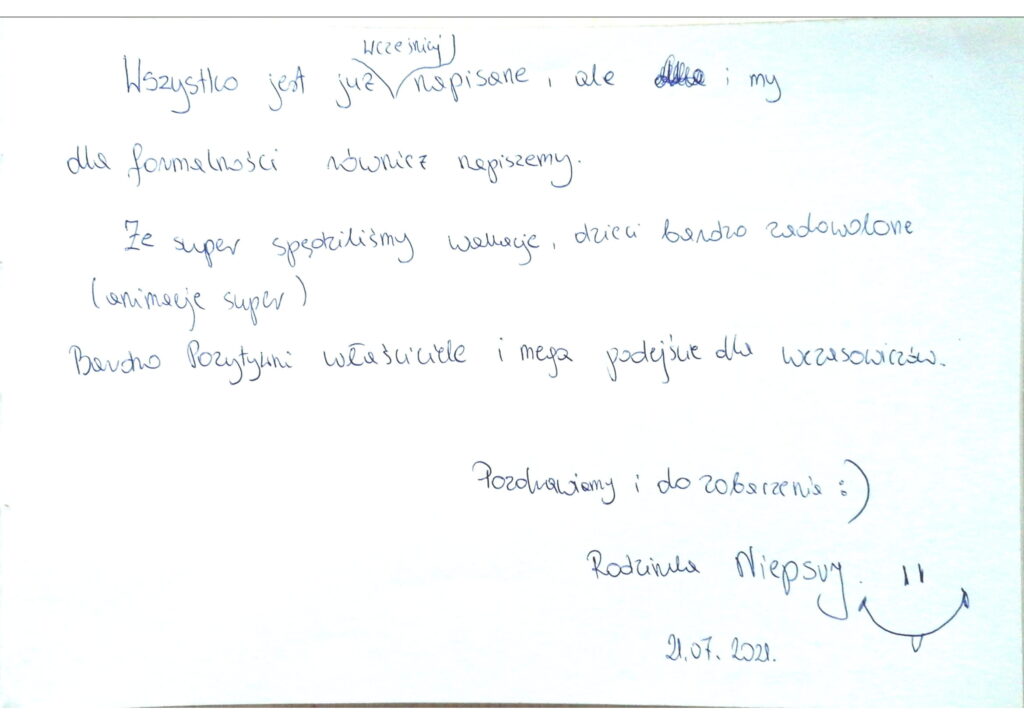 Wszystko jest już wcześniej napisane, ale i my
dla formalności również napiszemy.
Że super spędziliśmy wakacje, dzieci bardzo zadowolone
(animacje super)
Bardzo Pozytywni właściciele i mega podejście dla wczasowiczów.
Pozdrawiamy i do zobaczenia :)
Rodzinka Niepsuy.
21.07.2021.